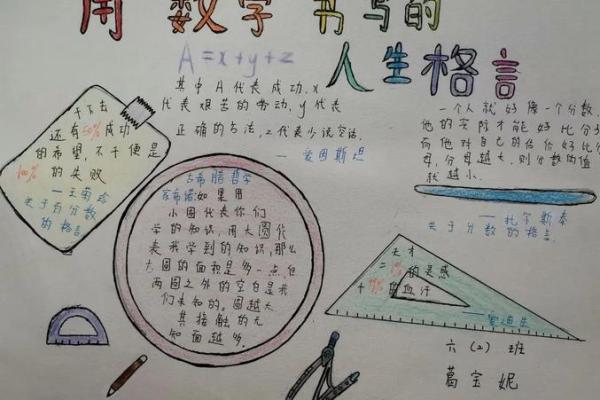 用数学书写的
人生格言
A=x+y+z
其中A代表成功,x
代表艰苦的劳动,y代表
正确的方法,z代表少说空话。
——爱因斯坦
干下去
还有50%成功
的希望,不干便是
100%
的失败
——王菊珍
关于百分数的
格言
古希腊哲学
家芝诺:如果用
小圆代表你们
学的知识,用大圆代
表我学到的知识,那么
大圆的面积是多一点,但
两圆之外的空白是我
们未知的。圆越大
其接触的无
知面越多。
一个人就好像一个分数,
他的实际才能好比分子
而他对自己的估价好比分
母,分母越大,则分数的值
就越小。
——托尔斯泰
关于分数的格言
天才
=1%的灵感
+99%的血汗
——爱迪生
六(2)班
葛宝妮